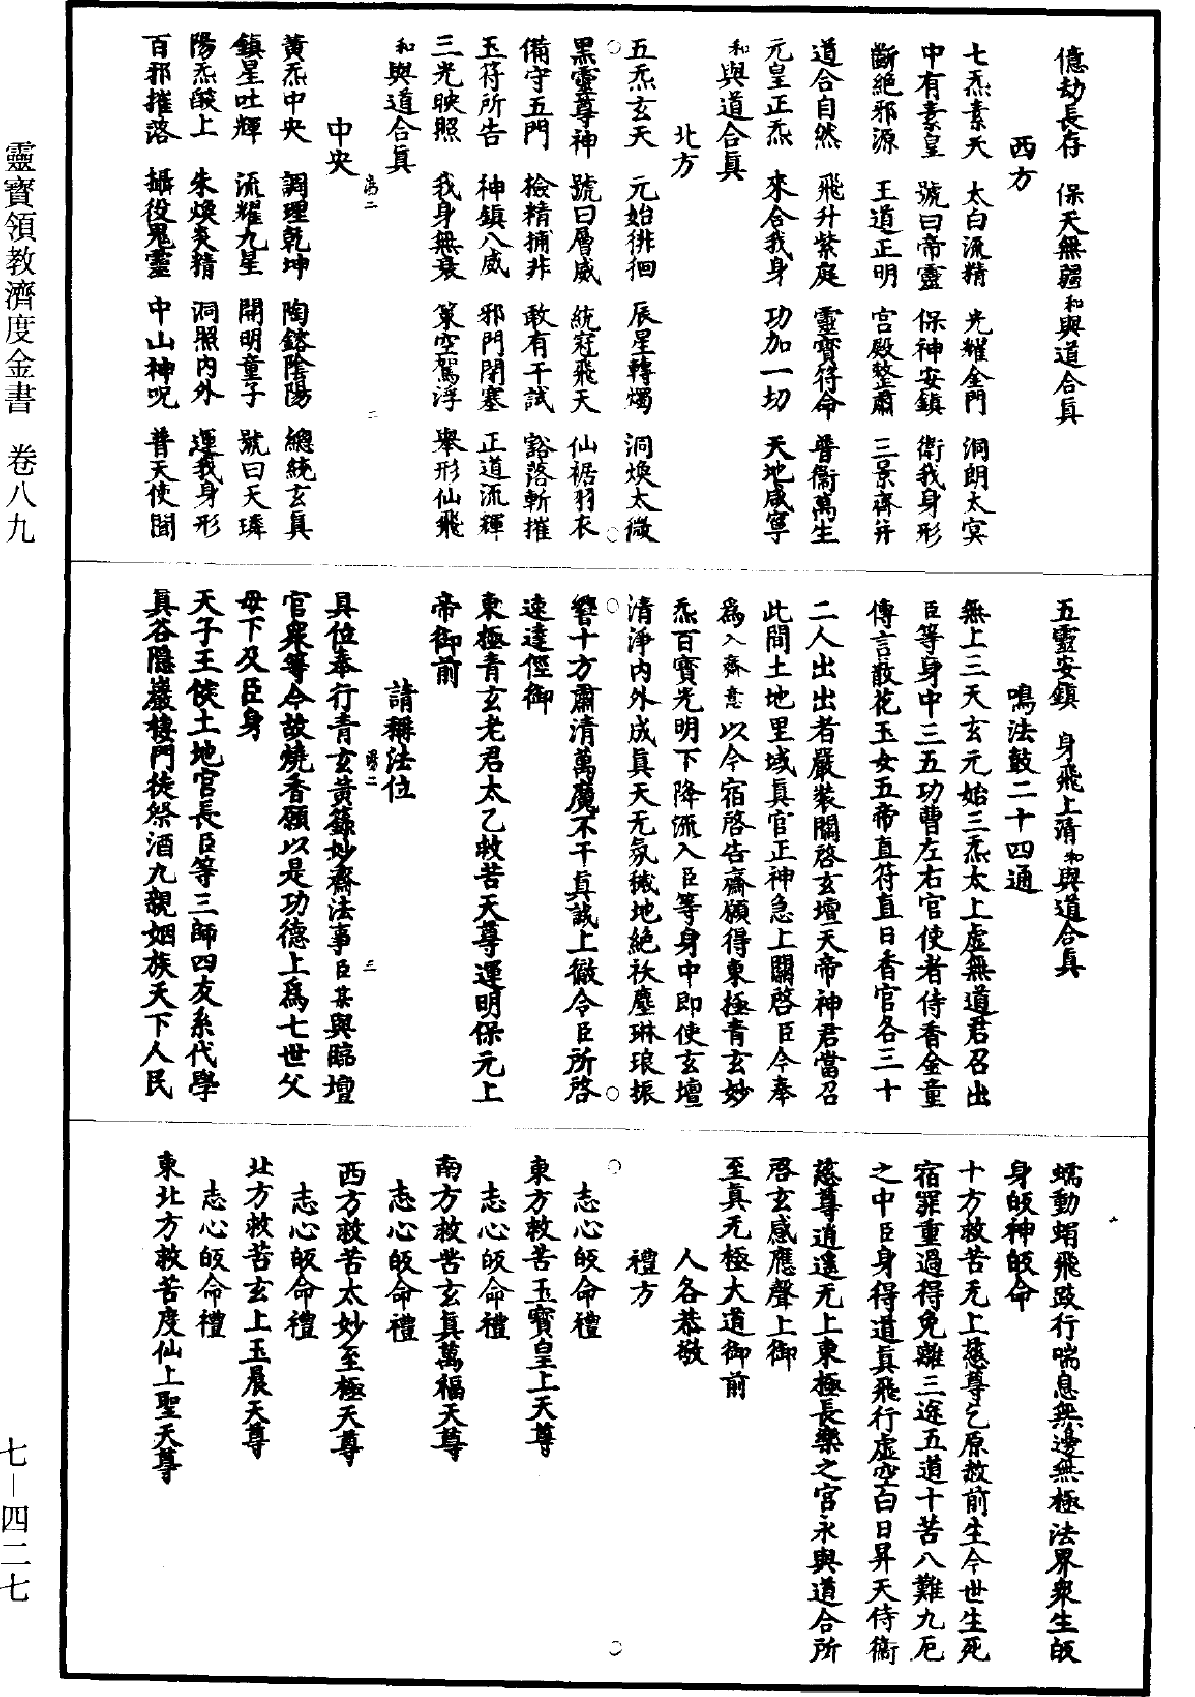 億劫長存　保天無疆和與道合真
西方
七炁素天　太白流精　光耀金門　洞朗太冥
中有素皇　號曰帝靈　保神安鎮　衛我身形
斷絕邪源　王道正明　宮殿整肅　三景齊并
道合自然　飛升紫庭　靈寶符命　普衛萬生
元皇正炁　來合我身　功加一切　天地咸寧
和與道合真
北方
五炁玄天　元始徘徊　辰星轉燭　洞煥太微
黑靈尊神　號曰層威　統冠飛天　仙裾羽衣
備守五門　檢精捕非　敢有干試　豁落斬摧
玉符所告　神鎮八威　邪門閉塞　正道流輝
三光映照　我身無衰　策空駕浮　舉形仙飛
和與道合真
中央
黃炁中央　調理乾坤　陶鎔陰陽　總統玄真
鎮星吐輝　流耀九星　開明童子　號曰天璘
陽炁燄上　朱煥炎精　洞照內外　運我身形
百邪摧落　攝役鬼靈　中山神呪　普天使聞
五靈安鎮　身飛上清和與道合真
鳴法鼓二十四通
無上三天玄元始三炁太上虛無道君召出
臣等身中三五功曹左右官使者侍香金童
傳言散花玉女五帝直符直日香官各三十
二人出出者嚴裝關啓玄壇天帝神君當召
此間土地里域真官正神急上關啓臣今奉
為入齋意以今宿啓告齋願得東極青玄妙
炁百寶光明下降流入臣等身中即使玄壇
清淨內外成真天无氛穢地絕祅塵琳琅振
響十方肅清萬魔不干真誠上徹令臣所啓
速達徑御
東極青玄老君太乙救苦天尊運明保元上
帝御前
請稱法位
具位奉行青玄黃籙妙齋法事臣某與臨壇
官眾等今故燒香願以是功德上為七世父
母下及臣身
天子王侯土地官長臣等三師四友系代學
真谷隱巖棲門徒祭酒九親姻族天下人民
蠕動蜎飛跂行喘息無邊無極法界眾生皈
身皈神皈命
十方救苦无上慈尊乞原赦前生今世生死
宿罪重過得免離三途五道十苦八難九厄
之中臣身得道真飛行虛空白日昇天侍衛
慈尊逍遙无上東極長樂之宮永與道合所
啓玄感應聲上御
至真无極大道御前
人各恭敬
禮方
志心皈命禮
東方救苦玉寶皇上天尊
志心皈命禮
南方救苦玄真萬福天尊
志心皈命禮
西方救苦太妙至極天尊
志心皈命禮
北方救苦玄上玉晨天尊
志心皈命禮
東北方救苦度仙上聖天尊
靈寶領教濟度金書　卷八九
七—四二七